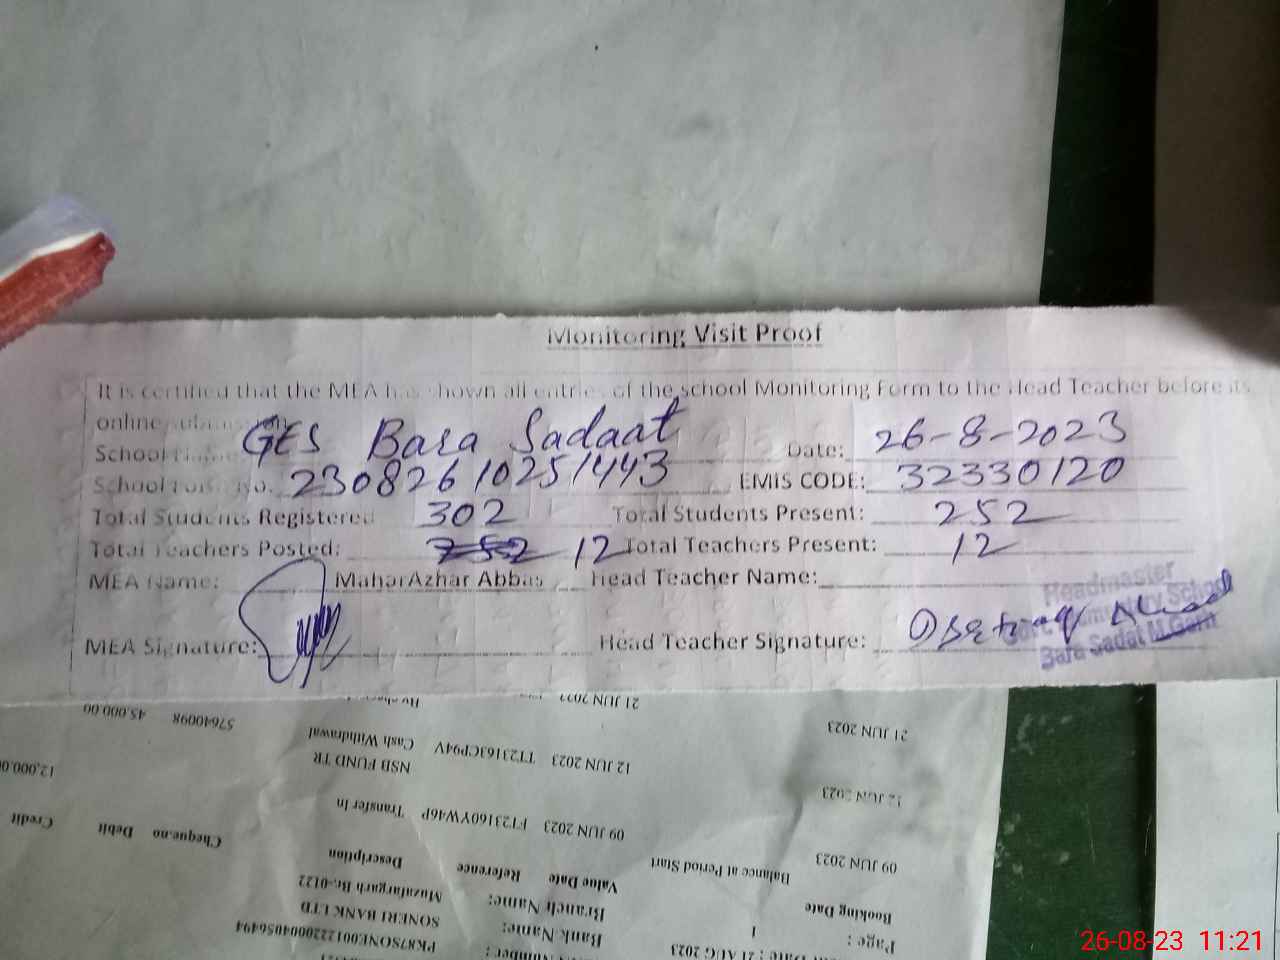 Monitoring Visit Proof
It is certified that the MEA has shown all entries of the school Monitoring Form to the Head Teacher before its
online submission
School Name GES Bara Sadaat Date: 26-8-2023
School No. 23082610251443 EMIS CODE: 32330120
Total Students Registered 302 Total Students Present: 252
Total Teachers Posted: 12 Total Teachers Present: 12
MEA Name: Mahar Azhar Abbas Head Teacher Name:
Headmaster
MEA Signature: Head Teacher Signature:
Govt. Elementary School
Bara Sadat M.Garh
21 JUN 2023 21 JUN 2022
12 JUN 2023 12 JUN 2023 TT23163CP94V Cash Withdrawal 57640098 45,000.00
NSB FUND TR
09 JUN 2023 09 JUN 2023 FT23160YW46P Transfer In 12,000.00
Balance at Period Start
Booking Date Value Date Reference Description Cheque.no Debit Credit
Page : 1 Branch Name: Muzafargarh Br.-0122
Bank Name: SONERI BANK LTD
Date : 21 AUG 2023 Number : PK87SONE0012220004056494
26-08-23 11:21